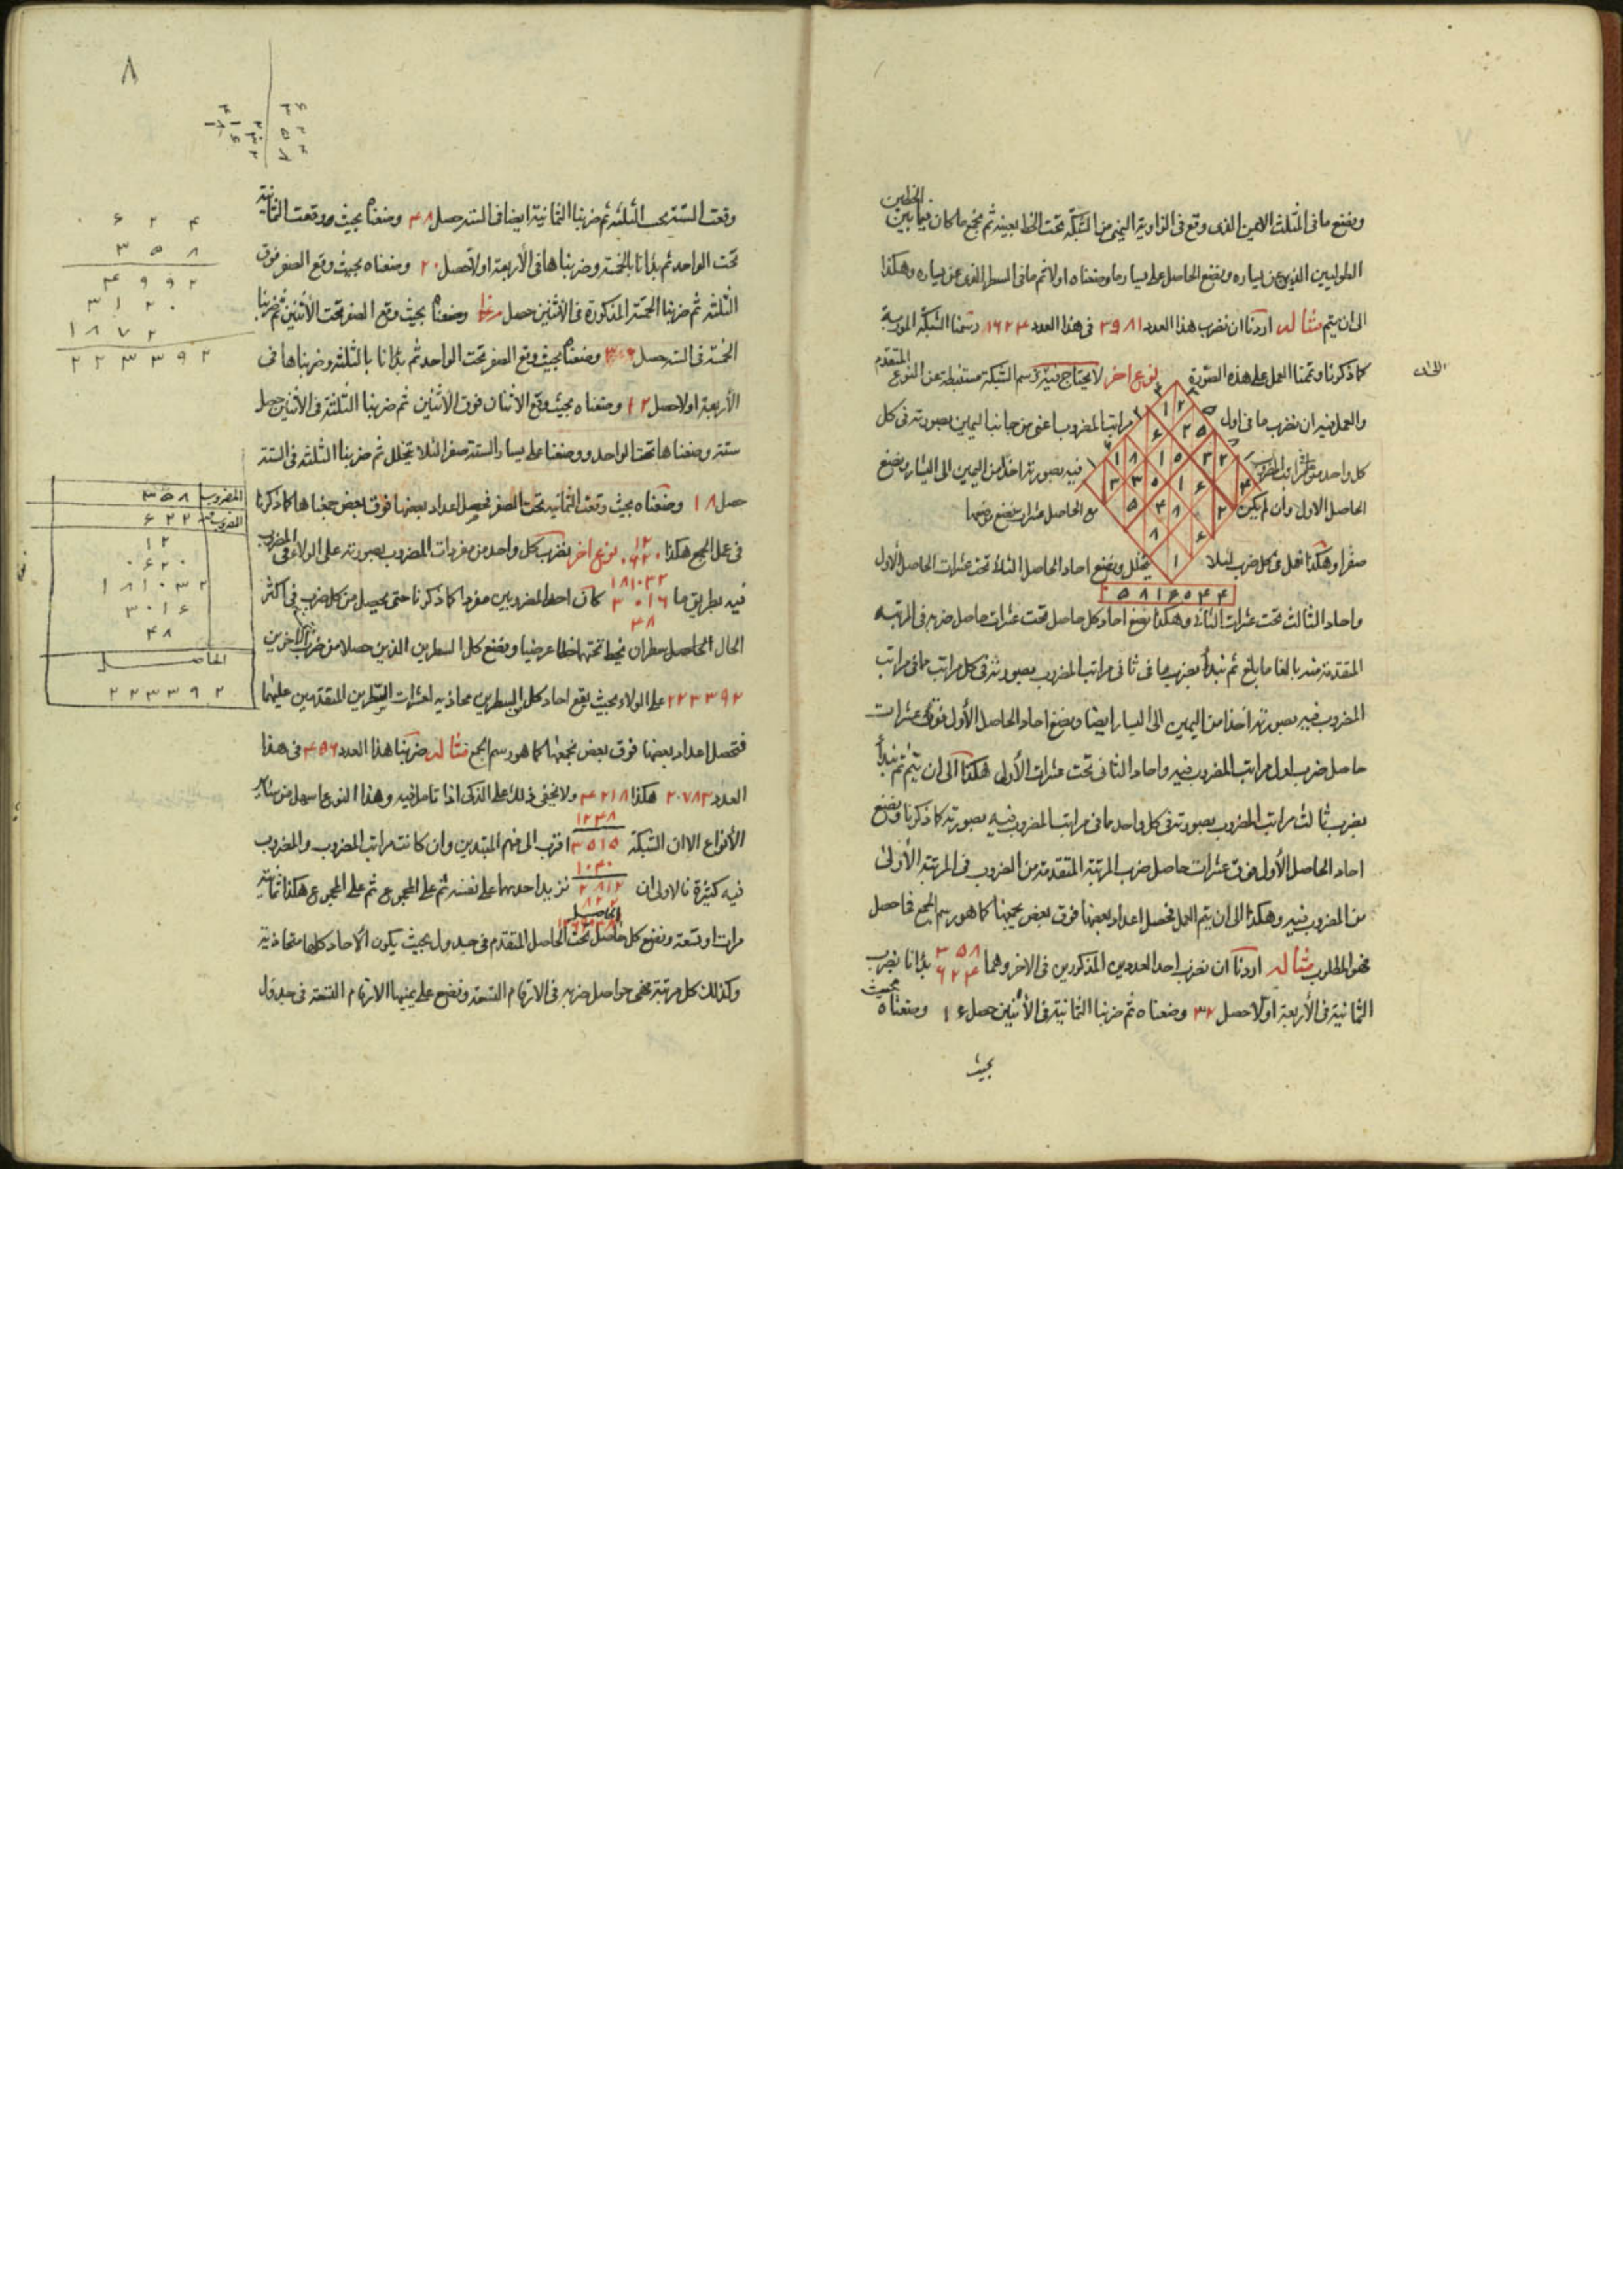 ونضع ما فى المثلث الايمن الذى وقع فى الزاوية اليمنى من الشبكة تحت الخط بعينه ثم نجمع ما كان فيما بين الخطين
الطوليين الذين عن يساره ونضع الحاصل على يسار ما وضعناه اولا ثم ما فى السطر الذى عن يساره وهكذا
الى ان يتم مثاله اردنا ان نضرب هذا العدد ٣٩٨١ فى هذا العدد ١٤٦٢ رسمنا الشبكة المورّبة
كما ذكرنا وتمّمنا العمل على هذه الصورة نوع اخر لا يحتاج فيه رسم الشبكة مستنبطة عن النوع المتقدم
والعمل فيه ان نضرب ما فى اول مراتب المضروب اعنى من جانب اليمين بصورته فى كل
كل واحد من مراتب المضروب فيه بصورته اخذا من اليمين الى اليسار ونضع
الحاصل الاول وان لم يكن مع الحاصل عشرات نضع موضعها
صفرا وهكذا نفعل فى كل ضرب لئلا يختلل ونضع احاد الحاصل الثانى تحت عشرات الحاصل الأول
٥ ٨ ١ ٦ ٥ ٤ ٤
واحاد الثالث تحت عشرات الثانى وهكذا نضع احاد كل حاصل تحت عشرات حاصل ضربه فى المرتبه
المتقدمة منه بالغا ما بلغ ثم نبدأ بضرب ما فى ثانى مراتب المضروب بصورته فى كل مراتب ما فى مراتب
المضروب فيه بصورته اخذا من اليمين الى اليسار ايضا ونضع احاد الحاصل الأول فوق عشرات
حاصل ضرب اول مراتب المضروب فيه واحاد الثانى تحت عشرات الأول هكذا الى ان يتم ثم نبدأ
بضرب ثالث مراتب المضروب بصورته فى كل واحد ما فى مراتب المضروب فيه بصورته كما ذكرنا ونضع
احاد الحاصل الأول فوق عشرات حاصل ضرب المرتبة المتقدمة من المضروب فى المرتبة الأولى
من المضروب فيه وهكذا الى ان يتم العمل فيحصل اعداد بعضها فوق بعض نجمعها كما هو رسم الجمع فما حصل
فهو المطلوب مثاله اردنا ان نضرب احد العددين المذكورين فى الاخر وهما ٣٥٨ ٦٢٤ بدأنا بضرب
الثمانية فى الأربعة اولا حصل ٣٢ وضعناه ثم ضربنا الثمانية فى الأثنين حصل ١٦ وضعناه بحيث
بحيث
٨
٠ ۶ ٢ ۴
٣ ۵ ٨
۴ ٩ ٩ ٢
٣ ١ ٢ ٠
١ ٨ ٧ ٢
٢ ٢ ٣ ٣ ٩ ٢
وقعت الستة تحت الثلثة ثم ضربنا الثمانية ايضا فى الستة حصل ٤٨ وضعناه بحيث وقعت الثمانية
تحت الواحد ثم بدأنا بالخمسة وضربناها فى الأربعة اولا حصل ٢٠ وضعناه بحيث وقع الصفر فوق
الثلثة ثم ضربنا الخمسة المذكورة فى الاثنين حصل وضعناه بحيث وقع الصفر تحت الأثنين ثم ضربنا
الخمسة فى الستة حصل ٣٠ وضعناه بحيث وقع الصفر تحت الواحد ثم بدأنا بالثلثة وضربناها فى
الأربعة اولا حصل ١٢ وضعناه بحيث وقع الاثنان فوق الاثنين ثم ضربنا الثلثة فى الأثنين حصل
ستة وضعناها تحت الواحد ووضعنا على يسار الستة صفرا لئلا يختلل ثم ضربنا الثلثة فى الستة
حصل ١٨ وضعناه بحيث وقعت الثمانية تحت الصفر فيحصل اعداد بعضها فوق بعض جمعناها كما ذكرنا
فى عمل الجمع هكذا ١٢ ٠٦٢٠ نوع اخر نضرب كل واحد من مفردات المضروب بصورته على الولاء فى المضروب
فيه بطريق ما ١٨١٠٣٢ ٣٠١٦ ٤٨ كان احد المضروبين مفردا كما ذكرنا حتى يحصل من كل ضرب فى اكثر
الحال الحاصل سطران نخط تحتها خطا عرضيا ونضع كل السطرين الذين حصلا من ضرب الاخرين
٢٢٣٣٩٢ على الولاء بحيث يقع احاد كل السطرين محاذيه لعشرات السطرين المتقدمين عليهما
فتحصل اعداد بعضها فوق بعض نجمعها كما هو رسم الجمع مثاله ضربنا هذا العدد ٤٥٦ فى هذا
العدد ٢٠٧٨٣ هكذا ٤٢١٨ ولا يخفى ذلك على الذكى اذا تامل فيه وهذا النوع اسهل من سائر
١٢٤٨
الأنواع الا ان الشبكة ٣٥١٥ اقرب الى فهم المبتدين وان كانت مراتب المضروب والمضروب
١٠٤٠
فيه كثيرة فالاولى ان ٢٨١٢ نزيد احدهما على نفسه ثم على المجموع ثم على المجموع هكذا ثمانية
الحاصل
مرات او تسعة ونضع كل حاصل تحت الحاصل المتقدم فى جدول بحيث يكون الاحاد كلها متحاذية
وكذلك كل مرتبة فهى حواصل ضربه فى الارقام التسعة ونضع على يمينها الارقام التسعة فى جدول
المضروب ٣ ۵ ٨
المضروب فيه ۶ ٢ ٢
١ ٢
٠ ۶ ٢ ٠
١ ٨ ١ ٠ ٣ ٢
٣ ٠ ١ ۶
۴ ٨
الحاصل
٢ ٢ ٣ ٣ ٩ ٢